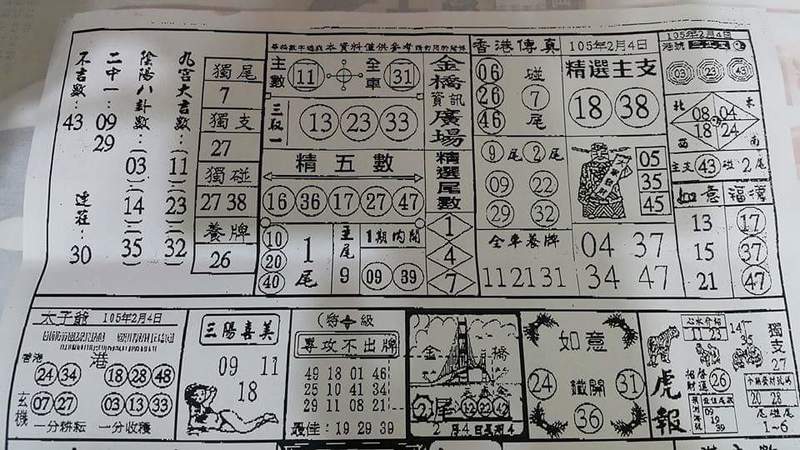 九宮大吉數:
11
23
32
陰陽八卦數:
03
14
35
二中一: 09
29
連莊: 30
不吉數: 43
獨尾
7
獨支
27
獨碰
27 38
養牌
26
本資料僅供參考
主數
11
全車
31
三取一
13 23 33
精五數
16 36 17 27 47
10
20
40
1
尾
主尾
9
1期內開
09 39
金橋
資訊
廣場
精選尾數
1
4
7
香港傳真
105年2月4日
06
26
46
碰
7
尾
精選主支
18 38
9尾 2尾
09 22
29 32
05
35
45
全車養牌
112131
04 37
34 47
105年2月4日
03 23 43
北 東
08 04
18 24
西 南
主支 43 碰 2尾
如意 福漢
13 17
15 37
21 47
太子爺 105年2月4日
香港
24 34
港
18 28 48
玄機
07 27
03 13 33
一分耕耘 一分收穫
三陽喜美
09 11
18
專攻不出牌
49 18 01 46
25 10 41 34
29 11 08 21
最佳: 19 29 39
金橋
2尾
12 22 42
2月4日星期4
如意
24 鐵開 31
36
虎報
11 23
14
35
獨支
27
26
09
19
39
20 28
尾碰尾
1~6